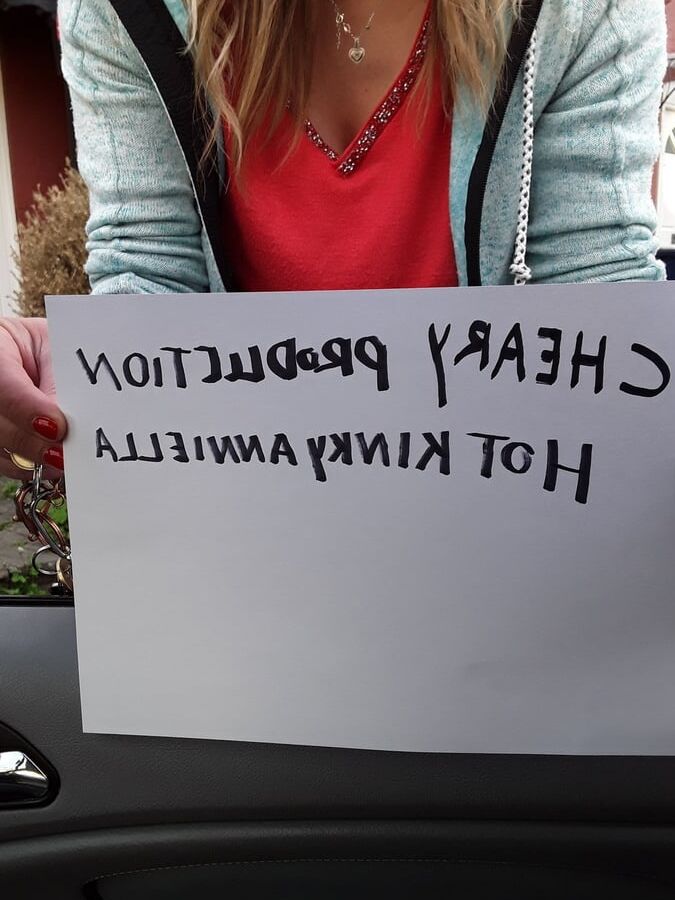 CHEARY PRODUCTION
HOT KINKYANNIELLA